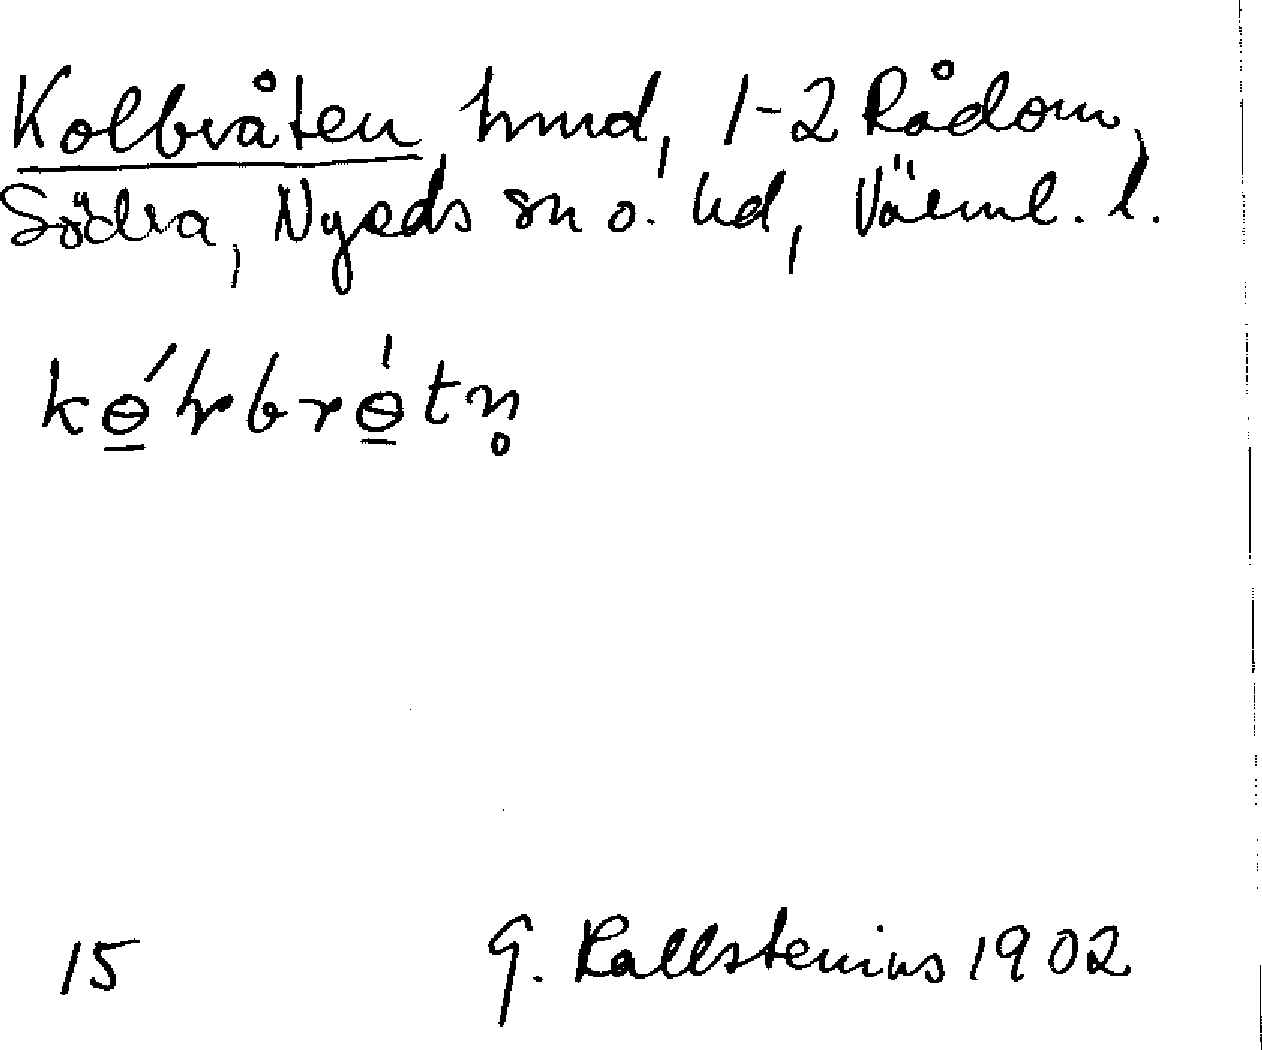 Kolbråten, hmd, 1-2 Rådom,
Södra, Nyeds sn o. hd, Värml. l.
kө̲́ɽbrө̲̍tn̥
15 G. Kallstenius 1902